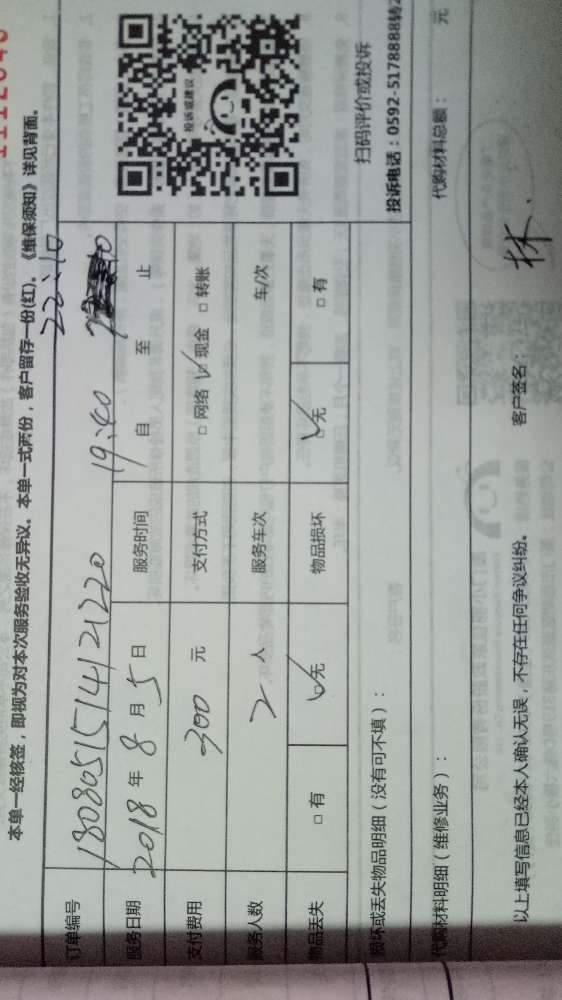 本单一经核签，即视为对本次服务验收无异议。本单一式两份，客户留存一份(红)。《维保须知》详见背面。
订单编号 1808051514121220
22:10
服务日期 2018 年 8 月 5 日 服务时间 自 19:40 至 止
支付费用 300 元 支付方式 □ 网络 ☑ 现金 □ 转账
服务人数 2 人 服务车次 车/次
物品丢失 □ 有 ☑ 无 物品损坏 ☑ 无 □ 有
投诉或建议
扫码评价或投诉
投诉电话：0592-5178888转2
损坏或丢失物品明细（没有可不填）：
代购材料明细（维修业务）： 代购材料总额： 元
以上填写信息已经本人确认无误，不存在任何争议纠纷。 客户签名： 林